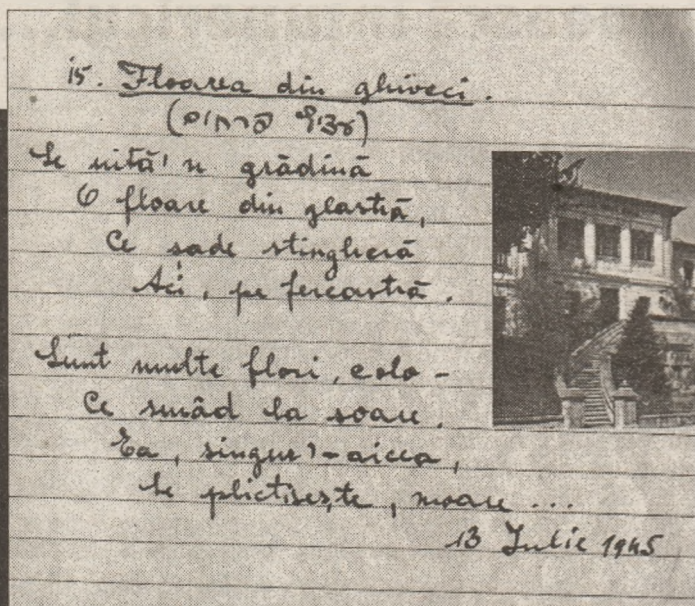 15. Floarea din ghiveci.
(עציץ פרחים)
Se uită'n grădină
O floare din glastră,
Ce șade stingheră
Aci, pe fereastră.
Sunt multe flori, colo -
Ce surâd la soare.
Ea, singur'-aicea,
Se plictisește, moare ...
13 Iulie 1945